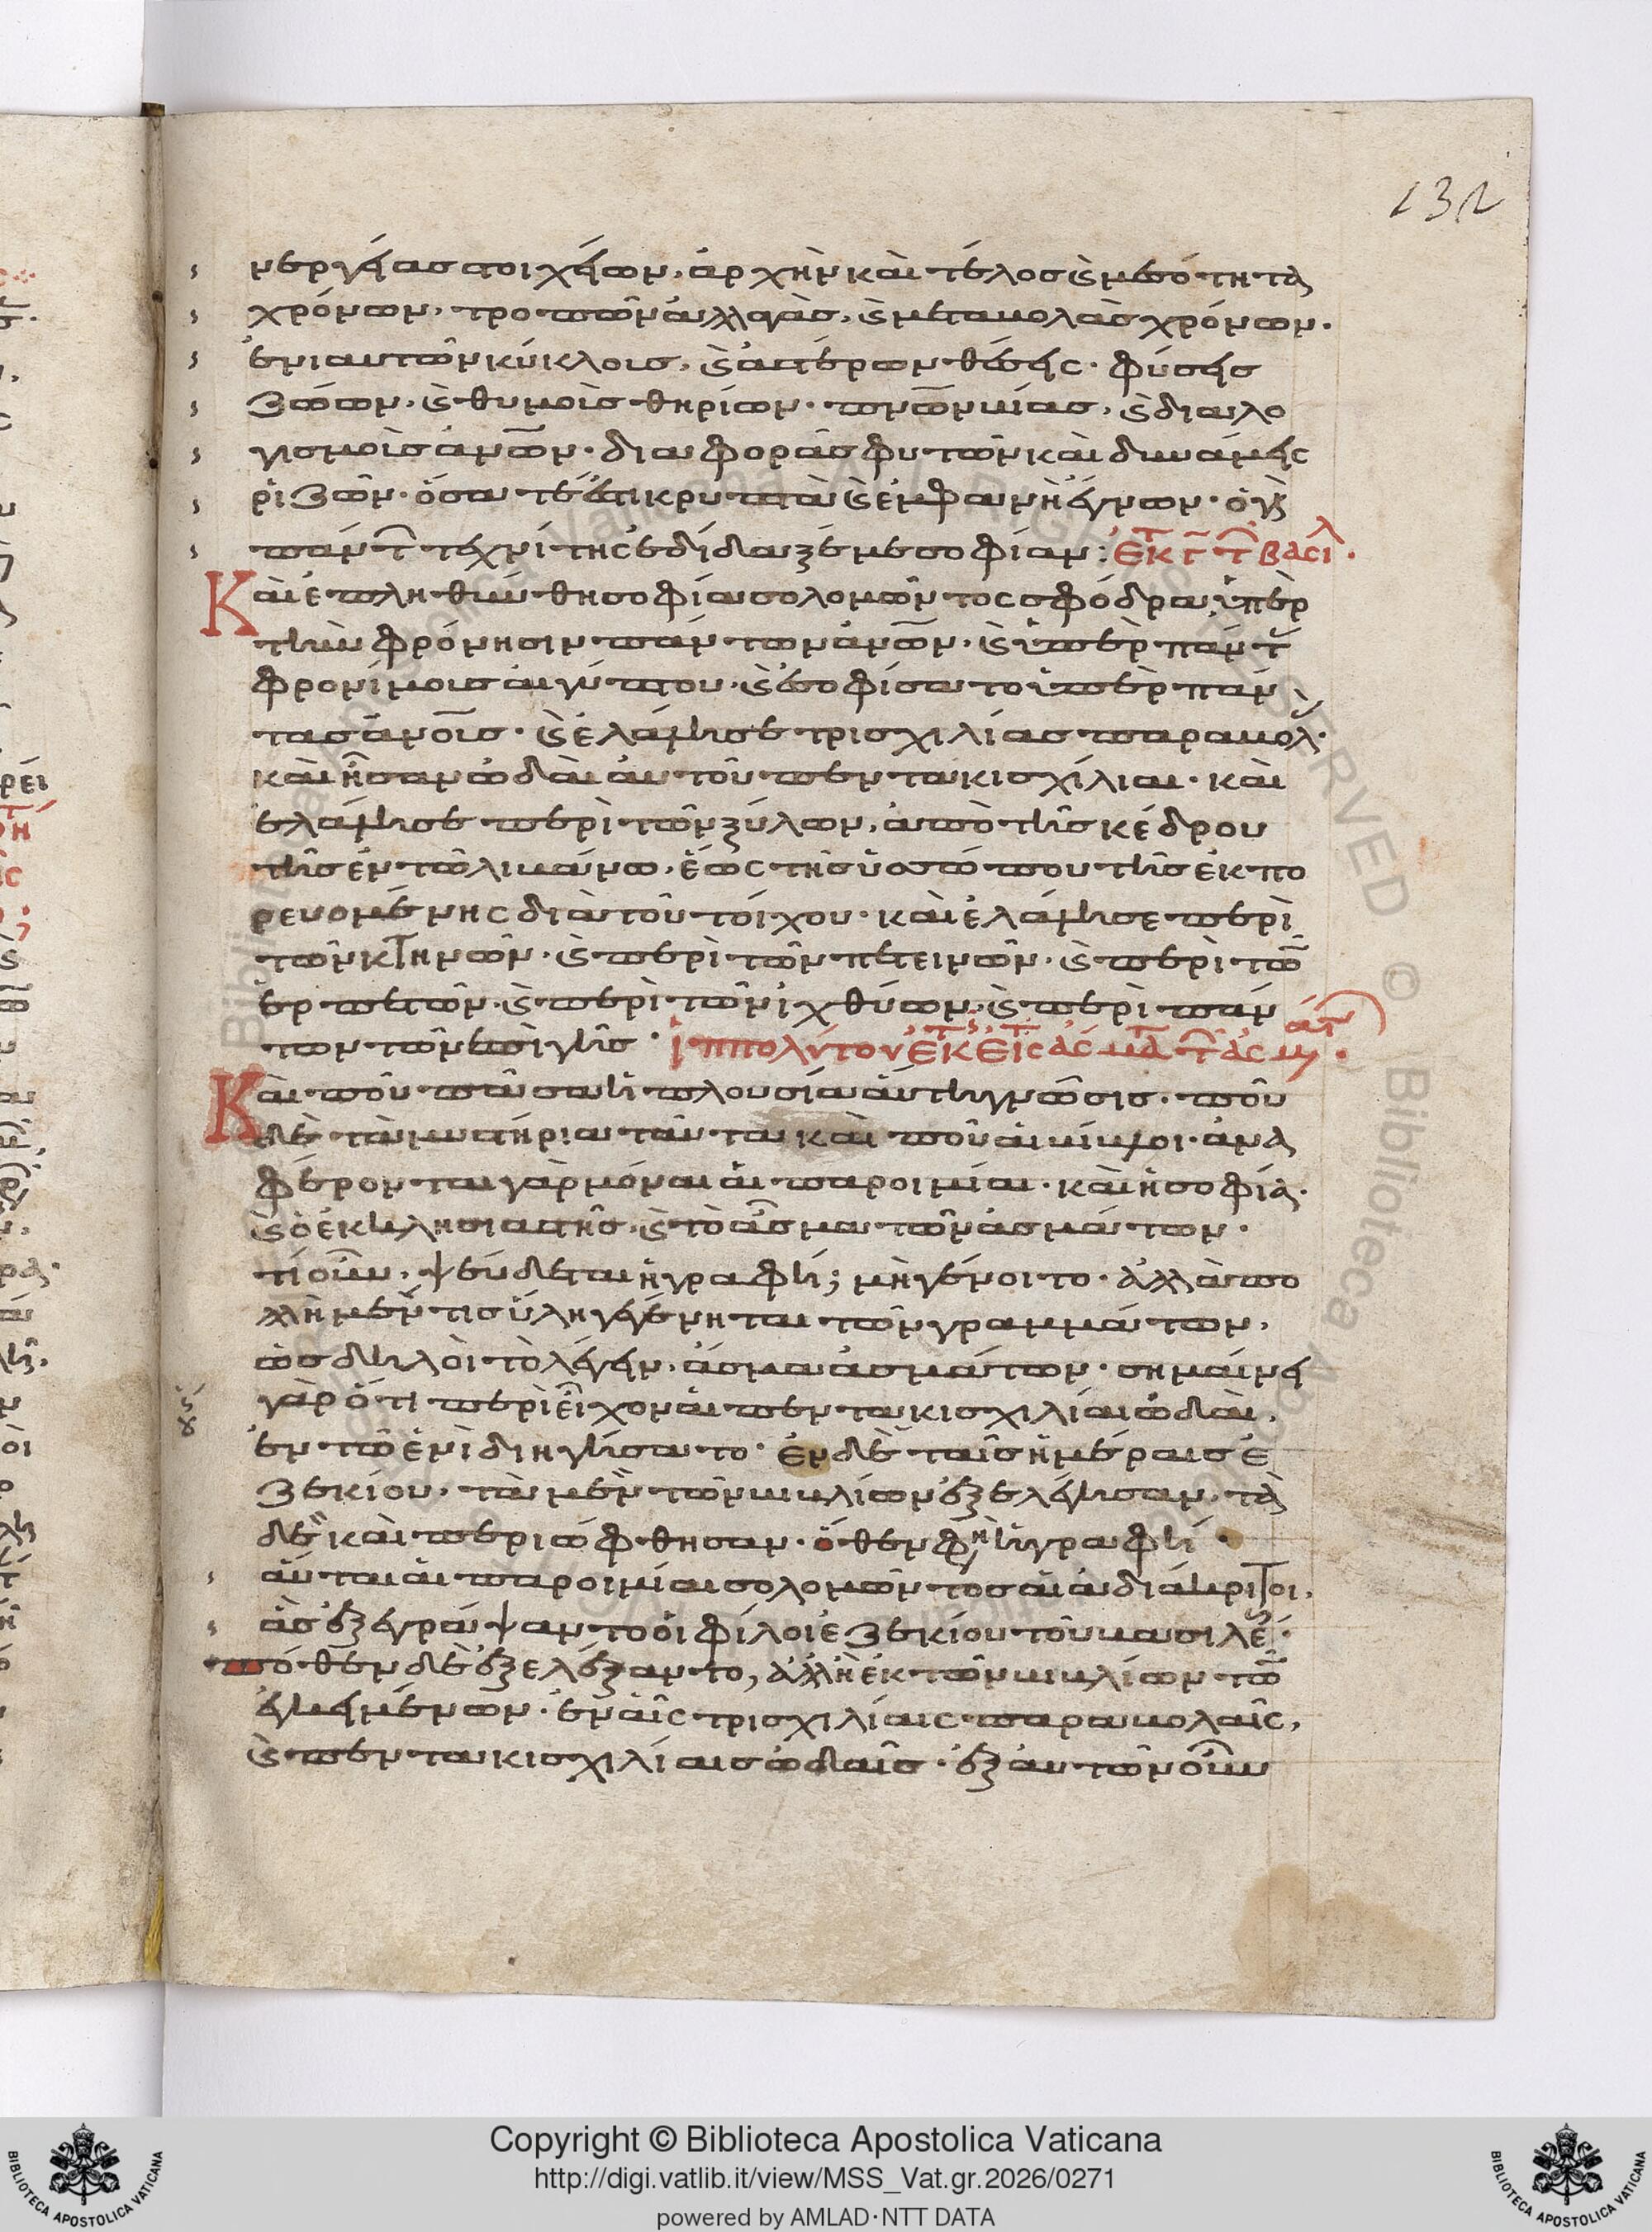 132
νεργείας στοιχείων, ἀρχὴν καὶ τέλος ϛ μεσότητα
χρόνων, τροπῶν ἀλλαγὰς, ϛ μεταβολὰς χρόνων·
ἐνιαυτῶν κύκλοις, ϛ ἀστέρων θέσεις· φύσεις
ζώων, ϛ θυμοὶς θηρίων· πνῶν βίας, ϛ διαλο
γισμοὶς ἀνῶν· διαφορὰς φυτῶν καὶ δυνάμεις
ῥιζῶν· ὅσα τέ ἐστι κρυπτὰ ϛ ἐμφανὴ ἔγνων· ὁ γὰρ
πάντ τεχνίτης ἐδίδαξέ με σοφίαν: ἐκ τ τ βασιλ·
Καὶ ἐπληθύνθη σοφία σολομῶντος σφόδρα ὑπὲρ
τὴν φρόνησιν πάντων ἀνῶν, ϛ ὑπὲρ πάντ
φρονίμους αἰγύπτου, ϛ ἐσοφίσατο ὑπὲρ πάν
τας ἀνοῖς· ϛ ἐλάλησε τρισχιλίας παραβολ·
καὶ ἦσαν ὠδαὶ αὐτοῦ πεντακισχίλιαι· καὶ
ἐλάλησε περὶ τῶν ξύλων, ἀπὸ τῆς κέδρου
τῆς ἐν τῶ λιβάνω, ἕως τῆς ὑσσώπου τῆς ἐκπο
ρευομένης διὰ τοῦ τοίχου· καὶ ἐλάλησε περὶ
τῶν κτηνῶν· ϛ περὶ τῶν πετεινῶν· ϛ περὶ τῶ
ἑρπετῶν, ϛ περὶ τῶν ἰχθύων, ϛ περὶ πάν
των τῶν ἐπὶ γῆς· ἱππολύτου ἐκ
Καὶ ποῦ πᾶσα ἡ πλουσία αὕτη γνῶσις· ποῦ
δὲ τὰ μυστήρια ταῦτα καὶ ποῦ αἱ βίβλοι· ἀνα
φέρονται γὰρ μόναι αἱ παροιμίαι· καὶ ἡ σοφία·
ϛ ὁ ἐκκλησιαστὴς, ϛ τὸ ᾆσμα τῶν ἀσμάτων·
τί οὖν, ψεύδεται ἡ γραφή; μὴ γένοιτο· ἀλλὰ πο
λλὴ μέν τις ὕλη γεγένηται τῶν γραμμάτων,
ὡς δηλοὶ τὸ λέγειν, ἄσμα ἀσμάτων· σημαίνει
γὰρ ὅτι περιεῖχον αἱ πεντακισχιλίαι ὠδαὶ,
ἐν τῶ ἑνὶ διηγήσατο· ἐν δὲ ταῖς ἡμέραις ἐ
ζεκίου, τὰ μὲν τῶν βιβλίων ἐξελέγησαν, τὰ
δὲ καὶ περιώφθησαν· ὅθεν φη ἡ γραφή·
αὗται αἱ παροιμίαι σολομῶντος αἱ ἀδιάκριτοι,
ἃς ἐξεγράψαντο οἱ φίλοι ἐζεκίου τοῦ βασιλέ·
πόθεν δὲ ἐξελέξαντο, ἀλλ ἢ ἐκ τῶν βιβλίων τῶ
λεγομένων· ἐν αἷς τρισχιλίαις παραβολαῖς,
ϛ πεντακισχιλίαις ὠδαῖς· ἐξ αὐτῶν οὖν
Copyright © Biblioteca Apostolica Vaticana
http://digi.vatlib.it/view/MSS_Vat.gr.2026/0271
powered by AMLAD·NTT DATA